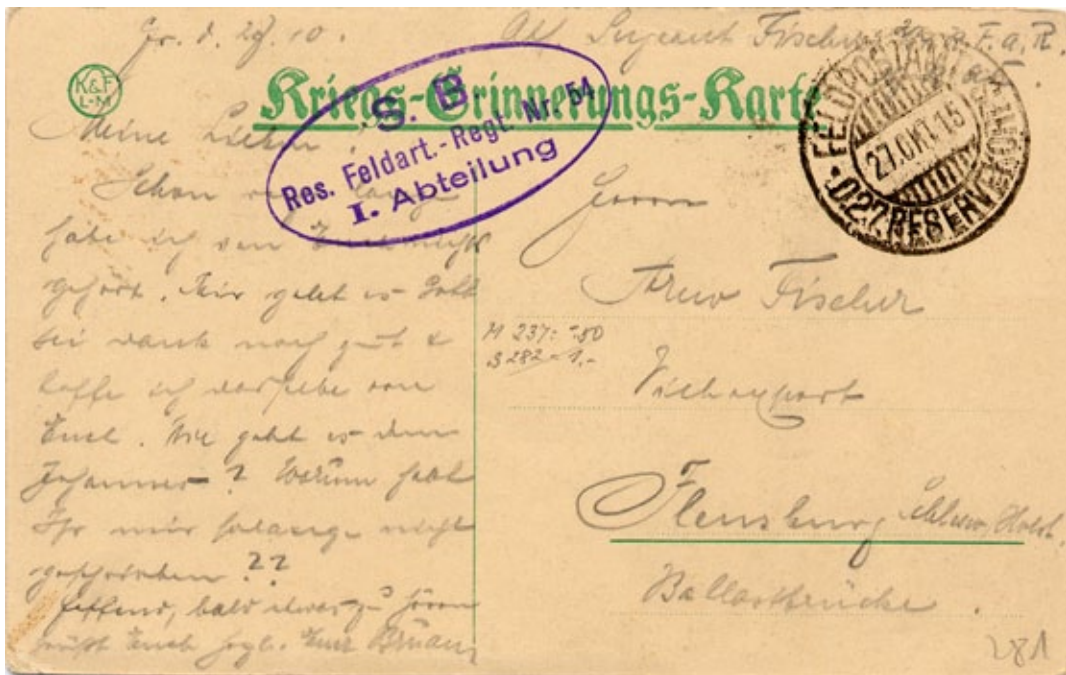 Gr. d. 27.10.
Abs. Sergeant Fischer R.F.a.R.
K&F
L-M
Kriegs-Erinnerungs-Karte
S. B
Res. Feldart.-Regt. Nr. 54
I. Abteilung
FELDPOSTAMT
27.OKT.15
D.27.RESERVEKORPS
Meine Lieben!
Schon lange
habe ich von Euch nichts
gehört. Mir geht es Gott
sei dank noch gut &
hoffe ich dasselbe von
Euch. Wie geht es dem
Johannes? Warum habt
Ihr mir solange nicht
geschrieben??
Hoffend, bald etwas zu hören
grüßt Euch hrzl. Euer
Herrn
Arno Fischer
Viehexport
Flensburg Schlesw. Holst.
Ballastbrücke.
M 237: -.50
S 282 - 1.-
281